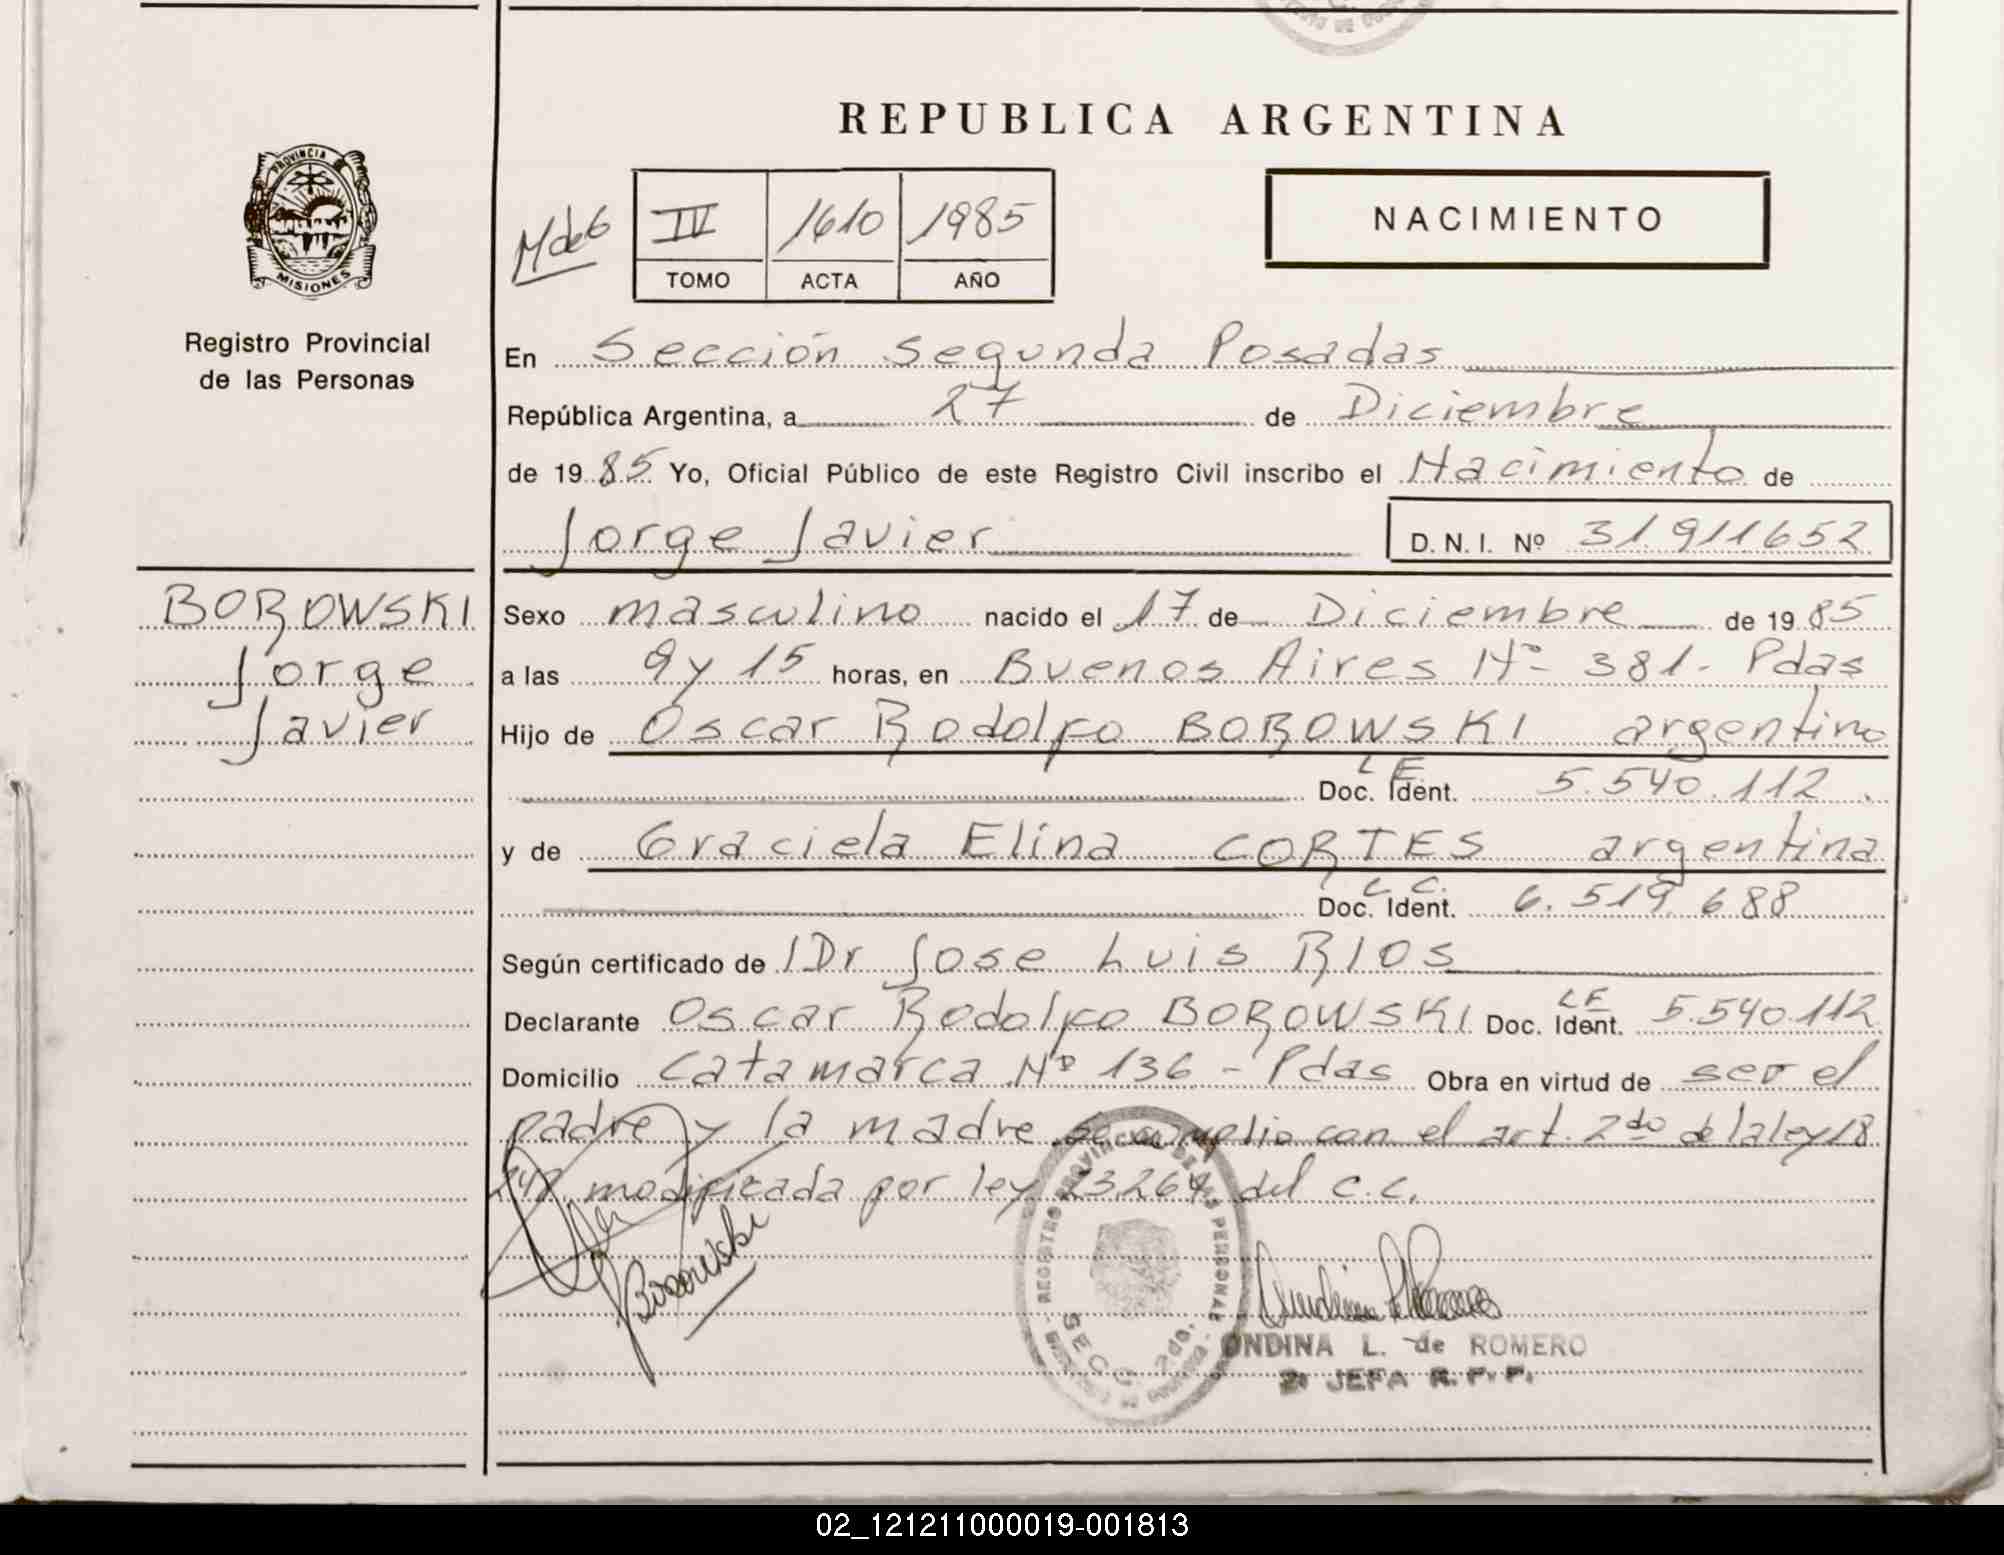 REPUBLICA ARGENTINA
PROVINCIA
MISIONES
Registro Provincial
de las Personas
M de 6
IV 1610 1985
TOMO ACTA AÑO
NACIMIENTO
En Sección Segunda Posadas
República Argentina, a 27 de Diciembre
de 1985 Yo, Oficial Público de este Registro Civil inscribo el Nacimiento de
Jorge Javier D. N. I. Nº 31911652
BOROWSKI
Jorge
Javier
Sexo masculino nacido el 17 de Diciembre de 1985
a las 9 y 15 horas, en Buenos Aires Nº 381 - Pdas
Hijo de Oscar Rodolfo BOROWSKI argentino
L E
Doc. Ident. 5.540.112.
y de Graciela Elina CORTES argentina
L. C.
Doc. Ident. 6.519.688
Según certificado de Dr Jose Luis RIOS
Declarante Oscar Rodolfo BOROWSKI Doc. Ident. LE 5.540.112
Domicilio Catamarca Nº 136 - Pdas Obra en virtud de ser el
padre y la madre. Se cumplio con el art. 2do de la ley 18
248 modificada por ley 23264 del c.c.
Borowski
REGISTRO PROVINCIAL DE LAS PERSONAS
SECC. 2da.
ONDINA L. de ROMERO
2ª JEFA R. P. P.
02_121211000019-001813